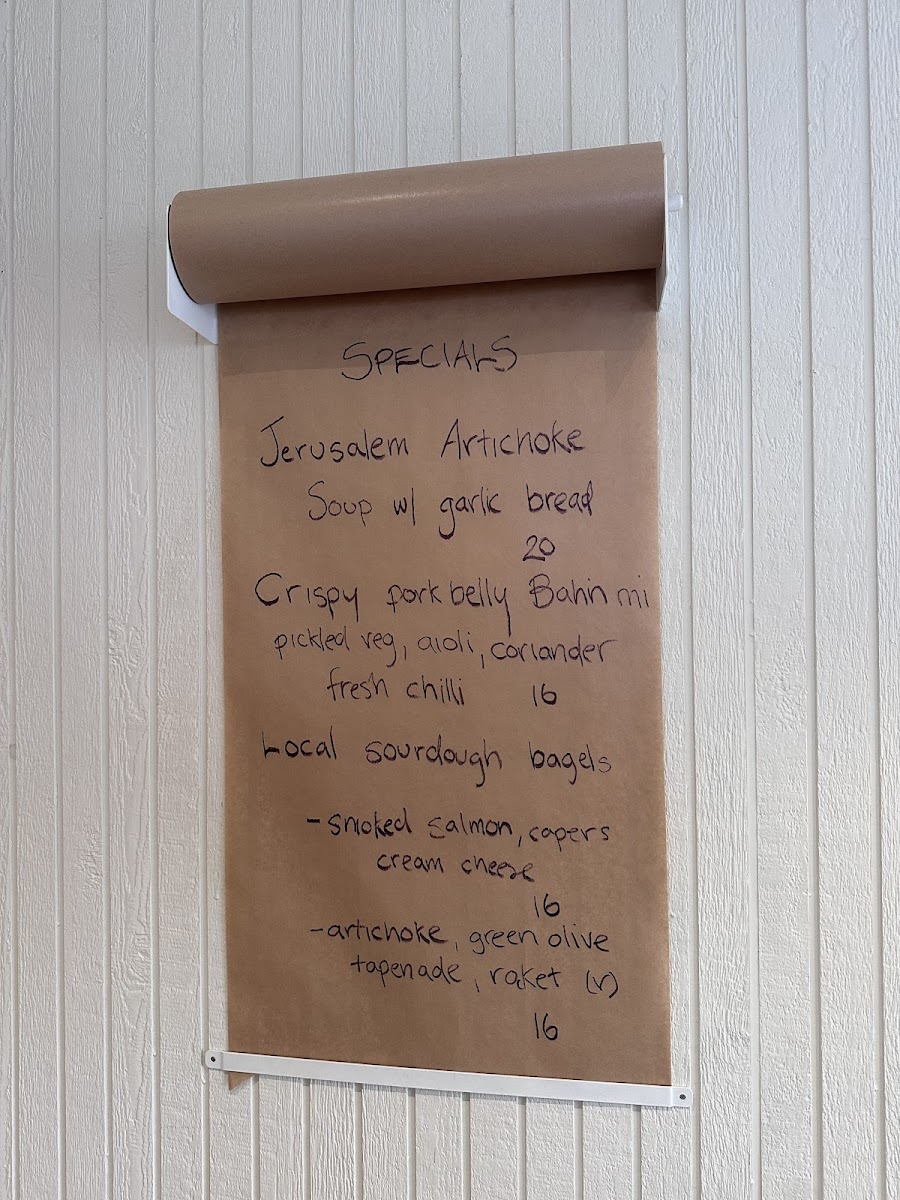 SPECIALS
Jerusalem Artichoke
Soup w/ garlic bread
20
Crispy pork belly Bahn mi
pickled veg, aioli, coriander
fresh chilli 16
Local sourdough bagels
- smoked salmon, capers
cream cheese
16
- artichoke, green olive
tapenade, rocket (v)
16